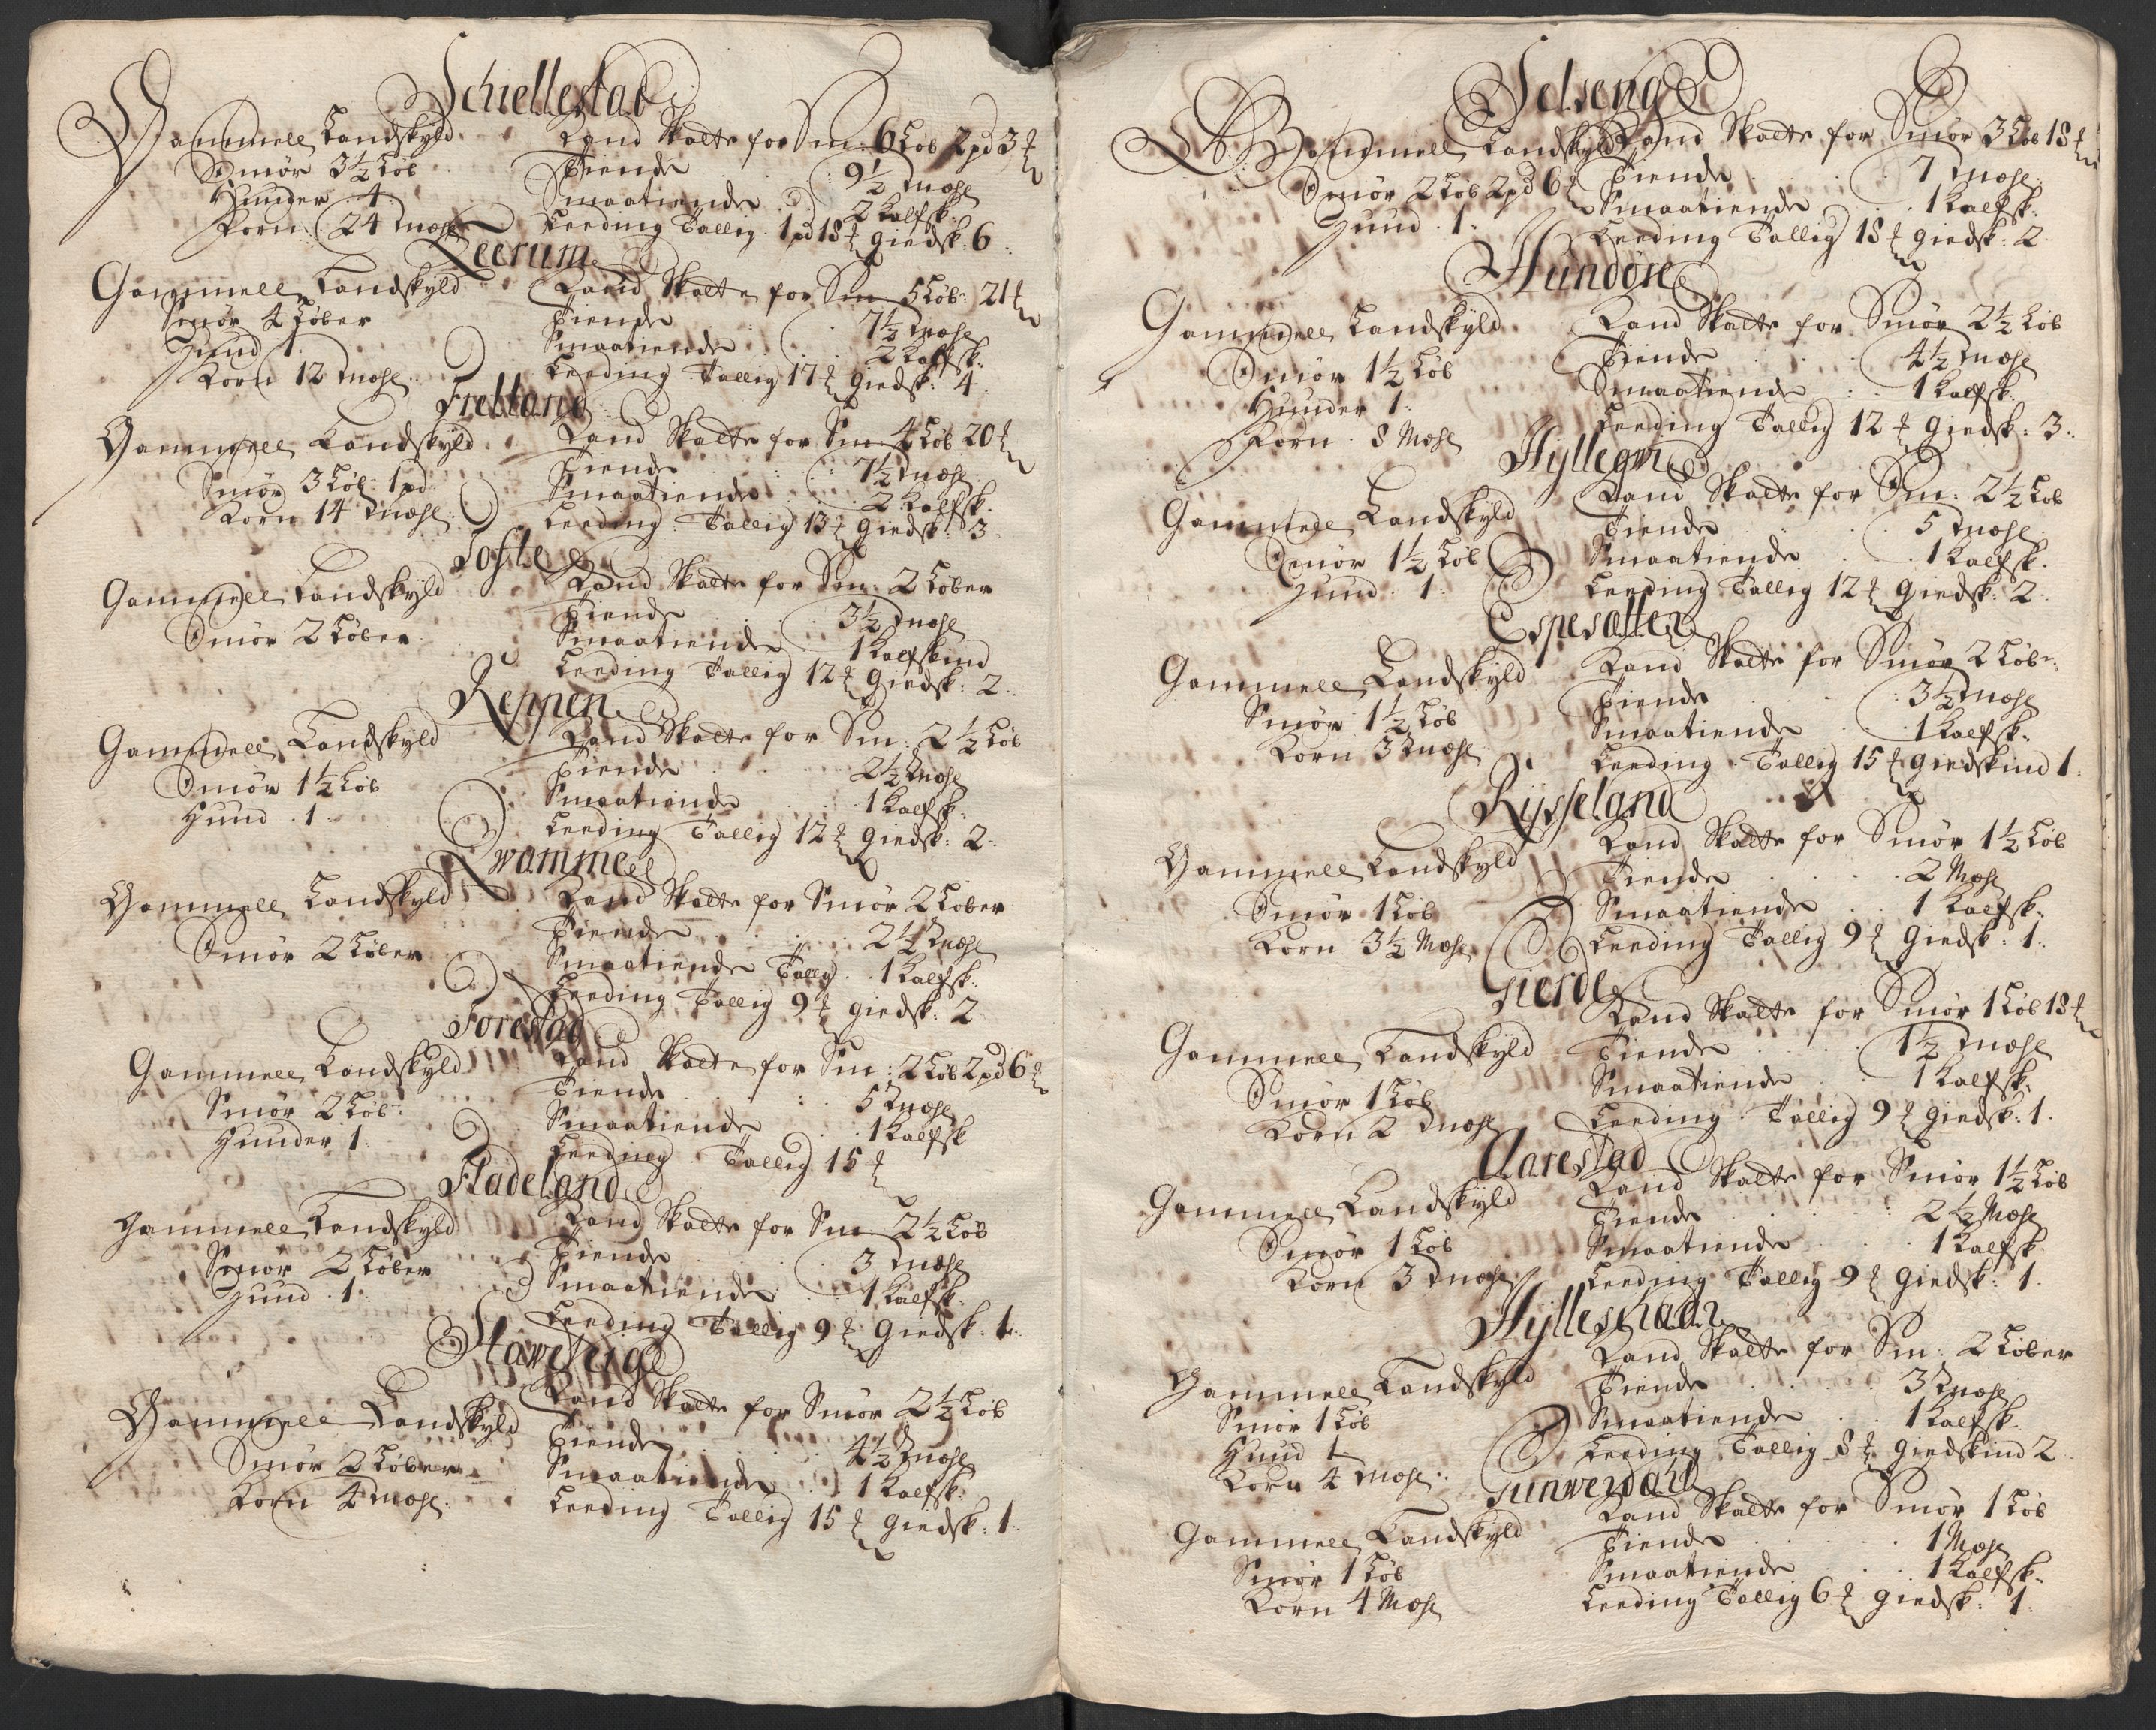 Schiellestad
Gammell Landskyld
Smør 3½ Løb
Hunder 4
Korn 24 Mæhl
Land Skatt for Sm: 6 Løb 2 pd 3 ℔
Tiende 9½ Mæhl
Smaatiende 2 Kalfsk:
Leeding Tallig 1 pd 18 ℔ Giedsk: 6
Leerum
Gammell Landskyld
Smør 4 Løber
Hund 1
Korn 12 Mæhl
Land Skatt for Sm 5 Løb: 21 ℔
Tiende 7½ Mæhl
Smaatiende 2 Kalfsk:
Leeding Tallig 17 ℔ Giedsk: 4
Fretland
Gammell Landskyld
Smør 3 Løb: 1 pd
Korn 14 Mæhl
Land Skatt for Sm: 4 Løb 20 ℔
Tiende 7½ Mæhl
Smaatiende 2 Kalfsk.
Leeding Tallig 13 ℔ Giedsk: 3
Tofte
Gammell Landskyld
Smør 2 Løber
Land Skatt for Sm: 2 Løber
Tiende 3½ Mæhl
Smaatiende 1 Kalfskind
Leeding Tallig 12 ℔ Giedsk: 2
Reppen
Gammell Landskyld
Smør 1½ Løb
Hund 1
Land Skatt for Sm: 2½ Løb
Tiende 2½ Mæhl
Smaatiende 1 Kalfsk:
Leeding Tallig 12 ℔ Giedsk: 2
Qwamme
Gammell Landskyld
Smør 2 Løber
Land Skatt for Smør 2 Løber
Tiende 2½ Mæhl
Smaatiende Tallig 1 Kalfsk:
Leeding Tallig 9 ℔ Giedsk: 2
Forestad
Gammell Landskyld
Smør 2 Løb
Hunder 1
Land Skatt for Sm: 2 Løb 2 pd 6 ℔
Tiende 5 Mæhl
Smaatiende 1 Kalfsk
Leeding Tallig 15 ℔
Fladeland
Gammell Landskyld
Smør 2 Løber
Hund 1
Land Skatt for Sm 2½ Løb
Tiende 3 Mæhl
Smaatiende 1 Kalfsk:
Leeding Tallig 9 ℔ Giedsk: 1
Gammell Landskyld
Smør 2 Løber
Korn 4 Mæhl
Land Skatt for Smør 2½ Løb
Tiende 4½ Mæhl
Smaatiende 1 Kalfsk:
Leeding Tallig 15 ℔ Giedsk: 1
Selseng
Gammell Landskyld
Smør 2 Løb 2 pd 6 ℔
Hund 1
Land Skatt for Smør 3 Løb 18 ℔
Tiende 7 Mæhl
Smaatiende 1 Kalfsk:
Leeding Tallig 18 ℔ Giedsk: 2
Hundøre
Gammell Landskyld
Smør 1½ Løb
Hunder 1
Korn 8 Mæhl
Land Skatt for Smør 2½ Løb
Tiende 4½ Mæhl
Smaatiende 1 Kalfsk.
Leeding Tallig 12 ℔ Giedsk: 3
Gammell Landskyld
Smør 1½ Løb
Hund 1
Land Skatt for Sm: 2½ Løb
Tiende 5 Mæhl
Smaatiende 1 Kalfsk.
Leeding Tallig 12 ℔ Giedsk: 2
Espesætter
Gammell Landskyld
Smør 1½ Løb
Korn 3 Mæhl
Land Skatt for Smør 2 Løb:
Tiende 3½ Mæhl
Smaatiende 1 Kalfsk.
Leeding Tallig 15 ℔ Giedskind 1
Rysseland
Gammell Landskyld
Smør 1 Løb
Korn 3½ Mæhl
Land Skatt for Smør 1½ Løb
Tiende 2 Mæhl
Smaatiende 1 Kalfsk.
Leeding Tallig 9 ℔ Giedsk: 1
Gierde
Gammell Landskyld
Smør 1 Løb
Korn 2 Mæhl
Land Skatt for Smør 1 Løb 18 ℔
Tiende 1½ Mæhl
Smaatiende 1 Kalfsk.
Leeding Tallig 9 ℔ Giedsk: 1
Aarestad
Gammell Landskyld
Smør 1 Løb
Korn 3 Mæhl
Land Skatt for Smør 1½ Løb
Tiende 2½ Mæhl
Smaatiende 1 Kalfsk
Leeding Tallig 9 ℔ Giedsk: 1
Gammell Landskyld
Smør 1 Løb
Hund 1
Korn 4 Mæhl
Land Skatt for Sm: 2 Løber
Tiende 3 Mæhl
Smaatiende 1 Kalfsk.
Leeding Tallig 8 ℔ Giedskind 2
Gunverdahl
Gammell Landskyld
Smør 1 Løb
Korn 4 Mæhl
Land Skatt for Smør 1 Løb
Tiende 1 Mæhl
Smaatiende 1 Kalfsk:
Leeding Tallig 6 ℔ Giedsk: 1